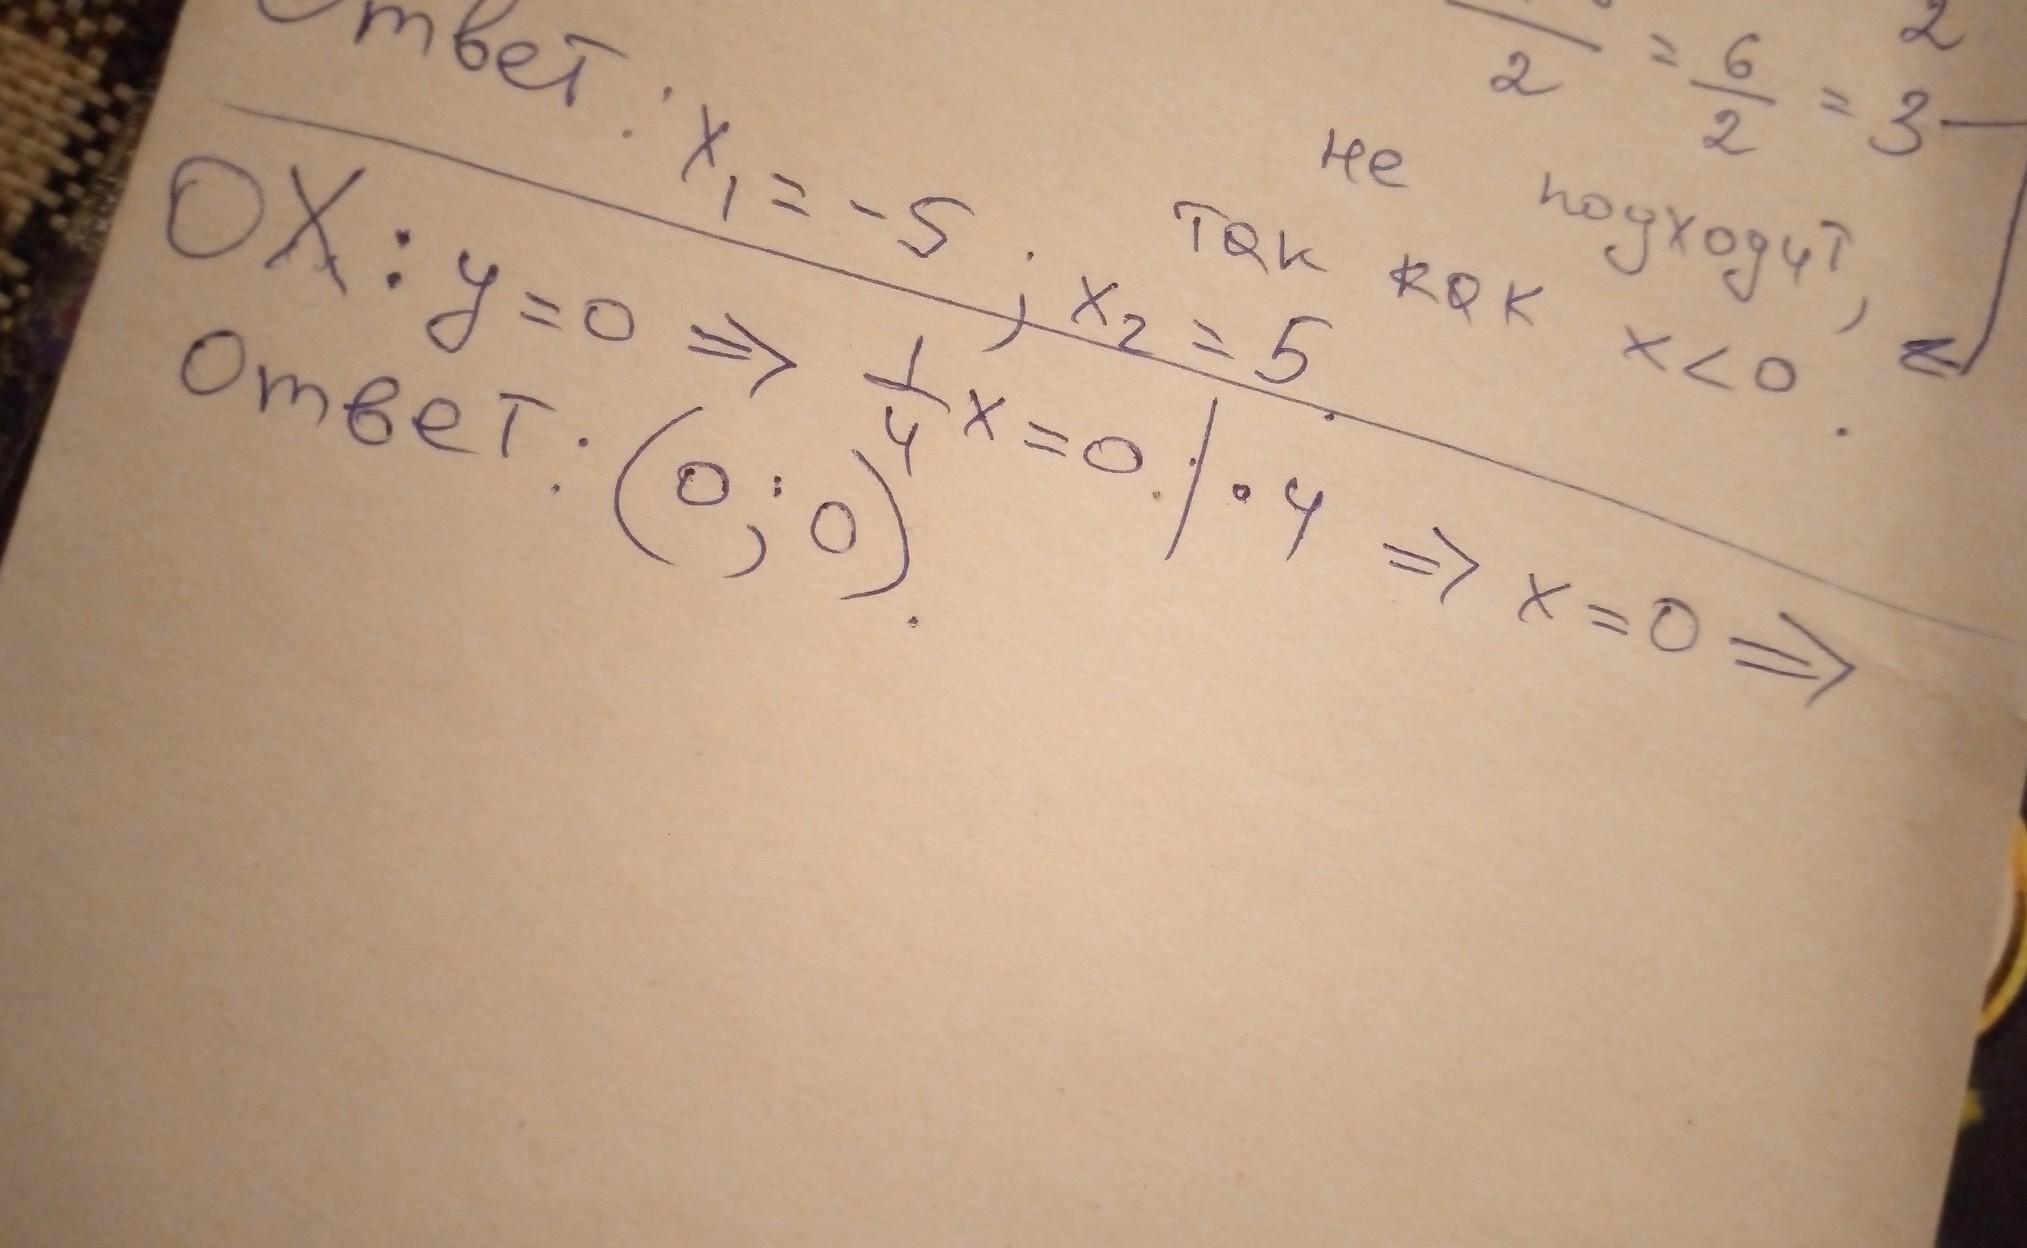 2
/2 = 6/2 = 3
не подходит,
так как x<0.
Ответ: x₁ = -5; x₂ = 5.
OX: y=0 ⇒ 1/4 x = 0 | · 4 ⇒ x = 0 ⇒
Ответ: (0; 0).